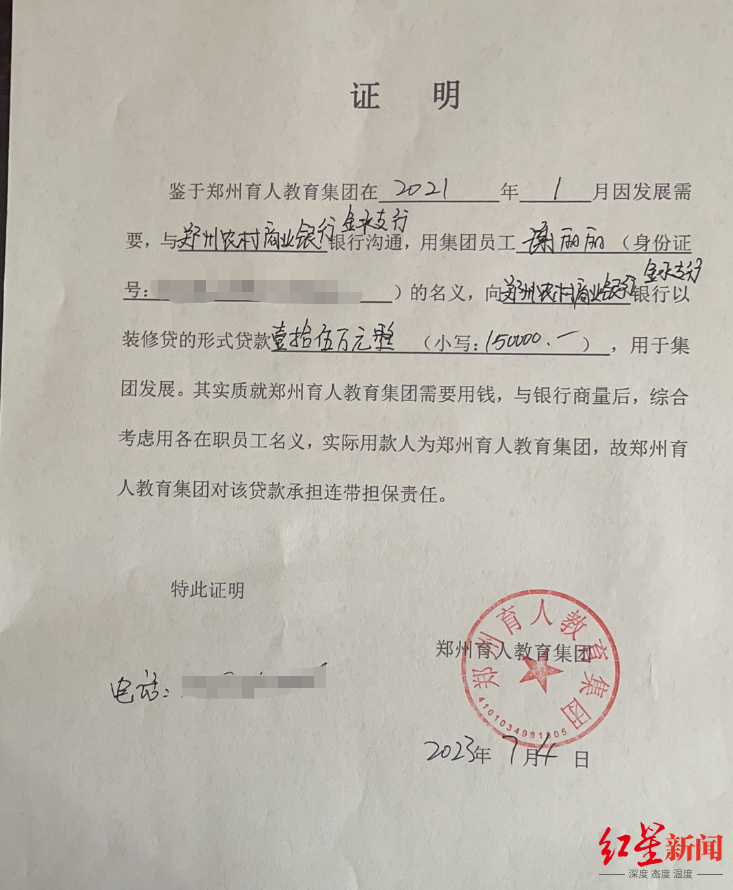 证 明
鉴于郑州育人教育集团在 2021 年 1 月因发展需
要，与郑州农村商业银行金水支行银行沟通，用集团员工 谢丽丽 （身份证
号： ）的名义，向郑州农村商业银行金水支行银行以
装修贷的形式贷款壹拾伍万元整 （小写：150000.一 ），用于集
团发展。其实质就郑州育人教育集团需要用钱，与银行商量后，综合
考虑用各在职员工名义，实际用款人为郑州育人教育集团，故郑州育
人教育集团对该贷款承担连带担保责任。
特此证明
郑州育人教育集团
郑州育人教育集团
电话：
2023年 7月4 日
红星新闻
深度 态度 温度